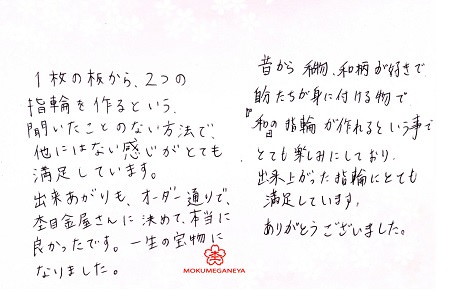 １枚の板から、２つの
指輪を作るという、
聞いたことのない方法で、
他にはない感じがとても
満足しています。
出来あがりも、オーダー通りで、
杢目金屋さんに決めて、本当に
良かったです。一生の宝物に
なりました。
昔から和物、和柄が好きで
自分たちが身に付ける物で
『和』の指輪が作れるという事で
とても楽しみにしており、
出来上がった指輪にとても
満足しています。
ありがとうございました。
MOKUMEGANEYA